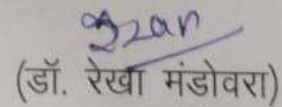 (डॉ. रेखा मंडोवरा)